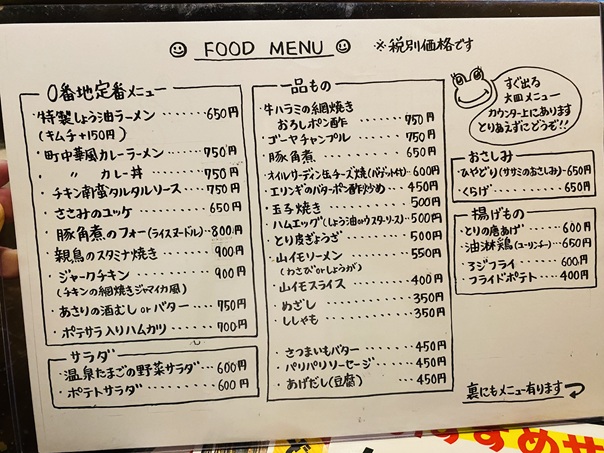 FOOD MENU
※税別価格です
0番地定番メニュー
・特製しょう油ラーメン・・・・・・650円
(キムチ+150円)
・町中華風カレーラーメン 750円
・ 〃 カレー丼・・・・・・750円
・チキン南蛮タルタルソース・・・・750円
・ささみのユッケ・・・・・・650円
・豚角煮のフォー(ライスヌードル)・・800円
・親鳥のスタミナ焼き・・・・・・900円
・ジャークチキン・・・・・・900円
(チキンの網焼きジャマイカ風)
・あさりの酒むし orバター・・・・750円
・ポテサラ入りハムカツ・・・・・・700円
サラダ
・温泉たまごの野菜サラダ・・・600円
・ポテトサラダ・・・・・・600円
一品もの
・牛ハラミの網焼き
おろしポン酢・・・・・・750円
・ゴーヤチャンプル・・・・・・750円
・豚角煮・・・・・・650円
・オイルサーディン缶チーズ焼(バゲット付)・・600円
・エリンギのバターポン酢炒め・・・450円
・玉子焼き・・・・・・500円
・ハムエッグ(しょう油orウスターソース)・・500円
・とり皮ぎょうざ・・・・・・500円
・山イモソーメン・・・・・・550円
(わさびorしょうが)
・山イモスライス・・・・・・400円
・めざし・・・・・・350円
・ししゃも・・・・・・350円
・さつまいもバター・・・・・・450円
・パリパリソーセージ・・・・450円
・あげだし(豆腐)・・・・・・450円
すぐ出る
大皿メニュー
カウンター上にあります
とりあえずにどうぞ!!
おさしみ
・ひやどり(ササミのおさしみ)・650円
・くらげ・・・・・・650円
揚げもの
・とりの唐あげ・・・・・・600円
・油淋鶏(ユーリンチー)・・・・650円
・3ジフライ・・・・・・600円
・フライドポテト・・・・400円
裏にもメニュー有ります